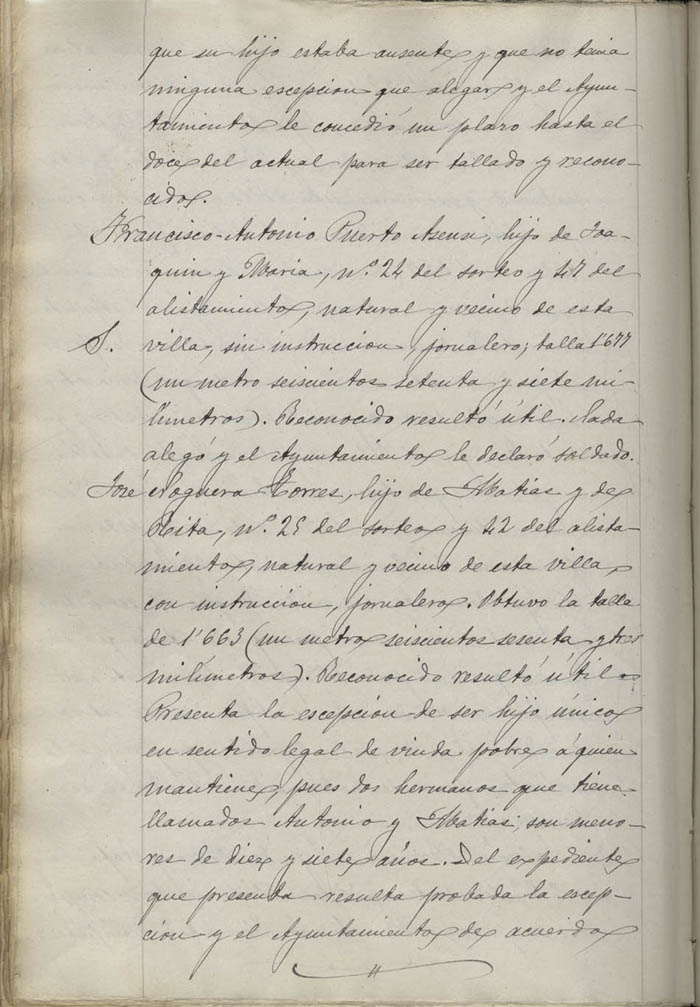 que su hijo estaba ausente y que no tenia
ninguna escepcion que alegar y el Ayun-
tamiento le concedió un plazo hasta el
doce del actual para ser tallado y recono-
cido.
Francisco-Antonio Puerto Asensi, hijo de Joa-
quin y Maria, nº 24 del sorteo y 47 del
alistamiento, natural y vecino de esta
S. villa, sin instruccion, jornalero; talla 1'677
(un metro seiscientos setenta y siete mi-
límetros). Reconocido resultó útil. Nada
alegó y el Ayuntamiento le declaró soldado.
José Noguera Torres, hijo de Matias y de
Rita, nº 25 del sorteo y 42 del alista-
miento, natural y vecino de esta villa,
con instruccion, jornalero. Obtuvo la talla
de 1'663 (un metro seiscientos sesenta y tres
milímetros). Reconocido resultó útil.
Presenta la escepcion de ser hijo único
en sentido legal de viuda pobre á quien
mantiene, pues dos hermanos que tiene
llamados Antonio y Matias, son meno-
res de diez y siete años. Del expediente
que presenta resulta probada la escep-
cion y el Ayuntamiento de acuerdo